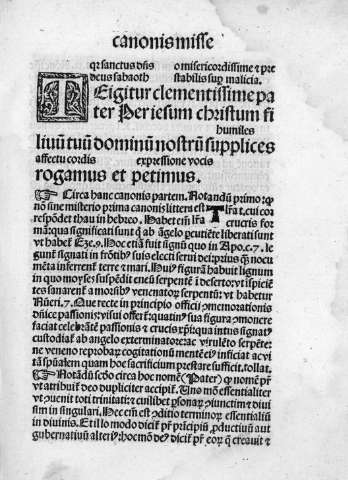 canonis misse
qr sanctus dñs o misericordissime & pre
deus sabaoth stabilis suꝑ malicia.
TE igitur clementissime pa
ter Per iesum christum fi
humiles
liuũ tuũ dominũ nostrũ supplices
affectu cordis expressione vocis
rogamus et petimus.
Circa hanc canonis partem. Notandũ primo: ꝙ
nõ sine misterio prima canonis littera est T. lr̃a t. cui cor
respõdet thau in hebreo. Habet em̃ lr̃a crucis for
mã: qua significati sunt q̃ ab ãgelo percutiẽte liberati sunt
vt habet̃ Eze. 9. Hoc etiã fuit signũ quo in Apo. c. 7. le
gunt̃ signati in frõtibꝰ suis electi serui dei: priusq̃ nocu
mẽta inferrent̃ terre & mari. Huiꝰ figurã habuit lignum
in quo moyses suspẽdit eneũ serpentẽ ĩ deserto: vt ĩspiciẽ
tes sanarent̃ a morsibꝰ venenatoꝝ serpentũ: vt habetur
Nũeri. 7. Que recte in principio officij memorationis
dñice passionis: visui offert̃: quatinꝰ sua figura ꝯmonere
faciat celebrãtẽ passionis & crucis xp̃i: qua intus signatꝰ
custodiat̃ ab angelo exterminatore: ac virulẽto serpẽte:
ne veneno reprobaꝝ cogitationũ mentẽ eiꝰ inficiat ac vi
tã sp̃ualem quam hoc sacrificium prestare sufficit. tollat.
Notãdũ scd̃o circa hoc nomẽ (Pater) ꝙ nomẽ pr̃is
vt atribuit̃ deo dupliciter accipit̃. Uno mõ essentialiter
vt ꝯuenit toti trinitati: & cuilibet ꝑsonaꝝ ꝯiunctim & diui
sim in singulari. Hec em̃ est ꝯditio terminoꝝ essentialiũ
in diuinis. Et illo modo dicit̃ pr̃ pr̃ncipiũ ꝓductiuũ aut
gubernatiuũ alteriꝰ: hoc mõ deꝰ dicit̃ pr̃ eoꝝ q̃ creauit &